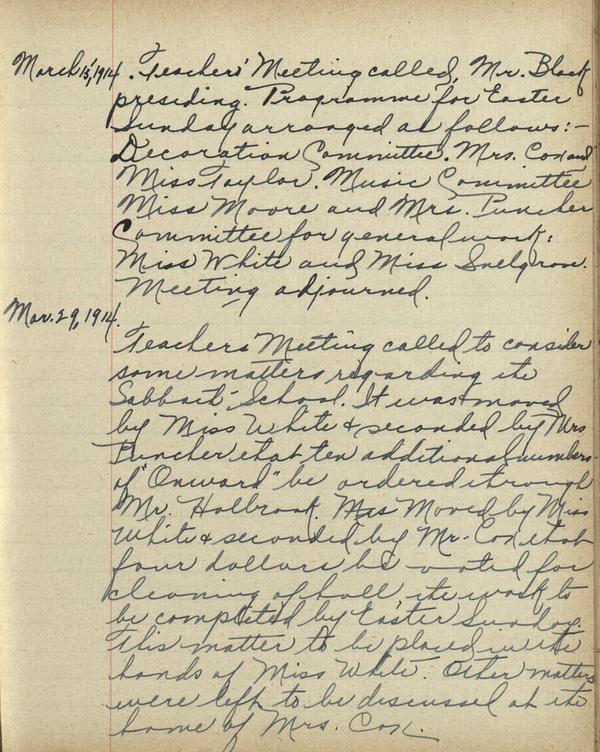 March 15, 1914. Teachers' Meeting called, Mr. Black
presiding. Programme for Easter
Sunday arranged as follows:-
Decoration Committee. Mrs. Cox and
Miss Taylor. Music Committee
Miss Moore and Mrs. Puncher
Committee for general work:
Miss White and Miss Snelgrove.
Meeting adjourned.
Mar. 29, 1914.
Teachers' Meeting called to consider
some matters regarding the
Sabbath School. It was moved
by Miss White & seconded by Mrs
Puncher that ten additional numbers
of "Onward" be ordered through
Mr. Holbrook. Moved by Miss
White & seconded by Mr. Cox that
four dollars be voted for
cleaning of hall the work to
be completed by Easter Sunday.
This matter to be placed in the
hands of Miss White. Other matters
were left to be discussed at the
home of Mrs. Cox.